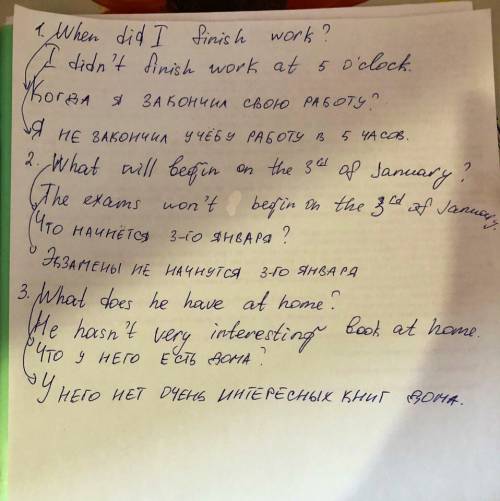 1. When did I finish work?
I didn't finish work at 5 o'clock.
Когда я закончил свою работу?
Я не закончил учёбу работу в 5 часов.
2. What will begin on the 3rd of January?
The exams won't begin on the 3rd of January.
Что начнётся 3-го января?
Экзамены не начнутся 3-го января
3. What does he have at home?
He hasn't very interesting book at home.
Что у него есть дома?
У него нет очень интересных книг дома.